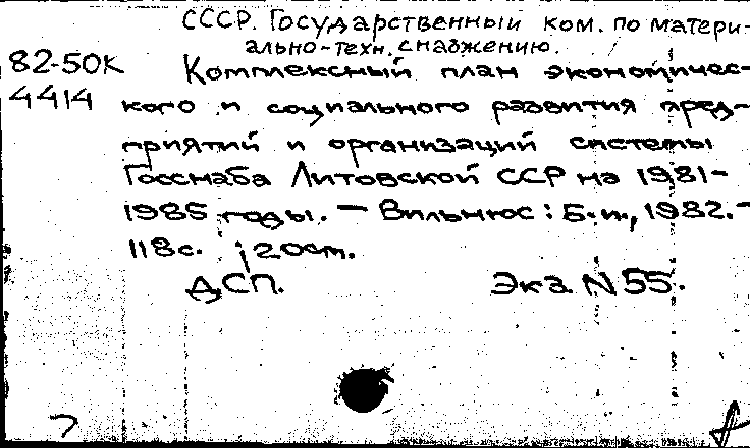 СССР. Государственный ком. по матери-
ально-техн. снабжению.
82-50К Комплексный план экономичес-
4414 кого и социального развития пред-
приятий и организаций системы
Госснаба Литовской ССР на 1981-
1985 годы. — Вильнюс: Б.и., 1982.-
118с. ; 20см.
ДСП. Экз. N 55.